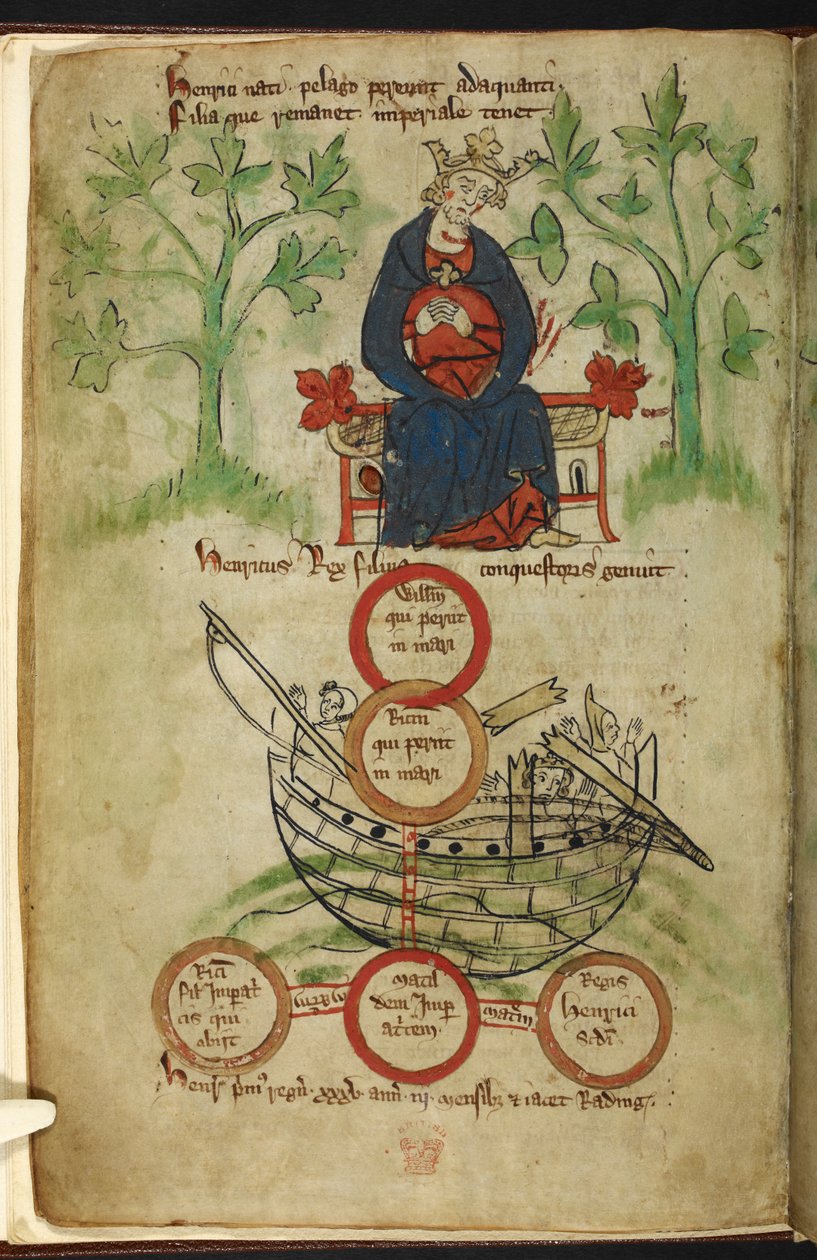 Henrici nati pelago perierunt adaquati.
Filia que remanet imperiale tenet.
Henricus Rex filius conquestoris genuit
Willm
qui periit
in mari
Ricm
qui periit
in mari
Rici
fil' Imperat
cis qui
obiit
Matil
dem Imp
atcem
matrem
Regis
Henrici
Scdi
Henr' prim' regn' xxxv ann' iij mensibz & iacet Rading.
BRITISH